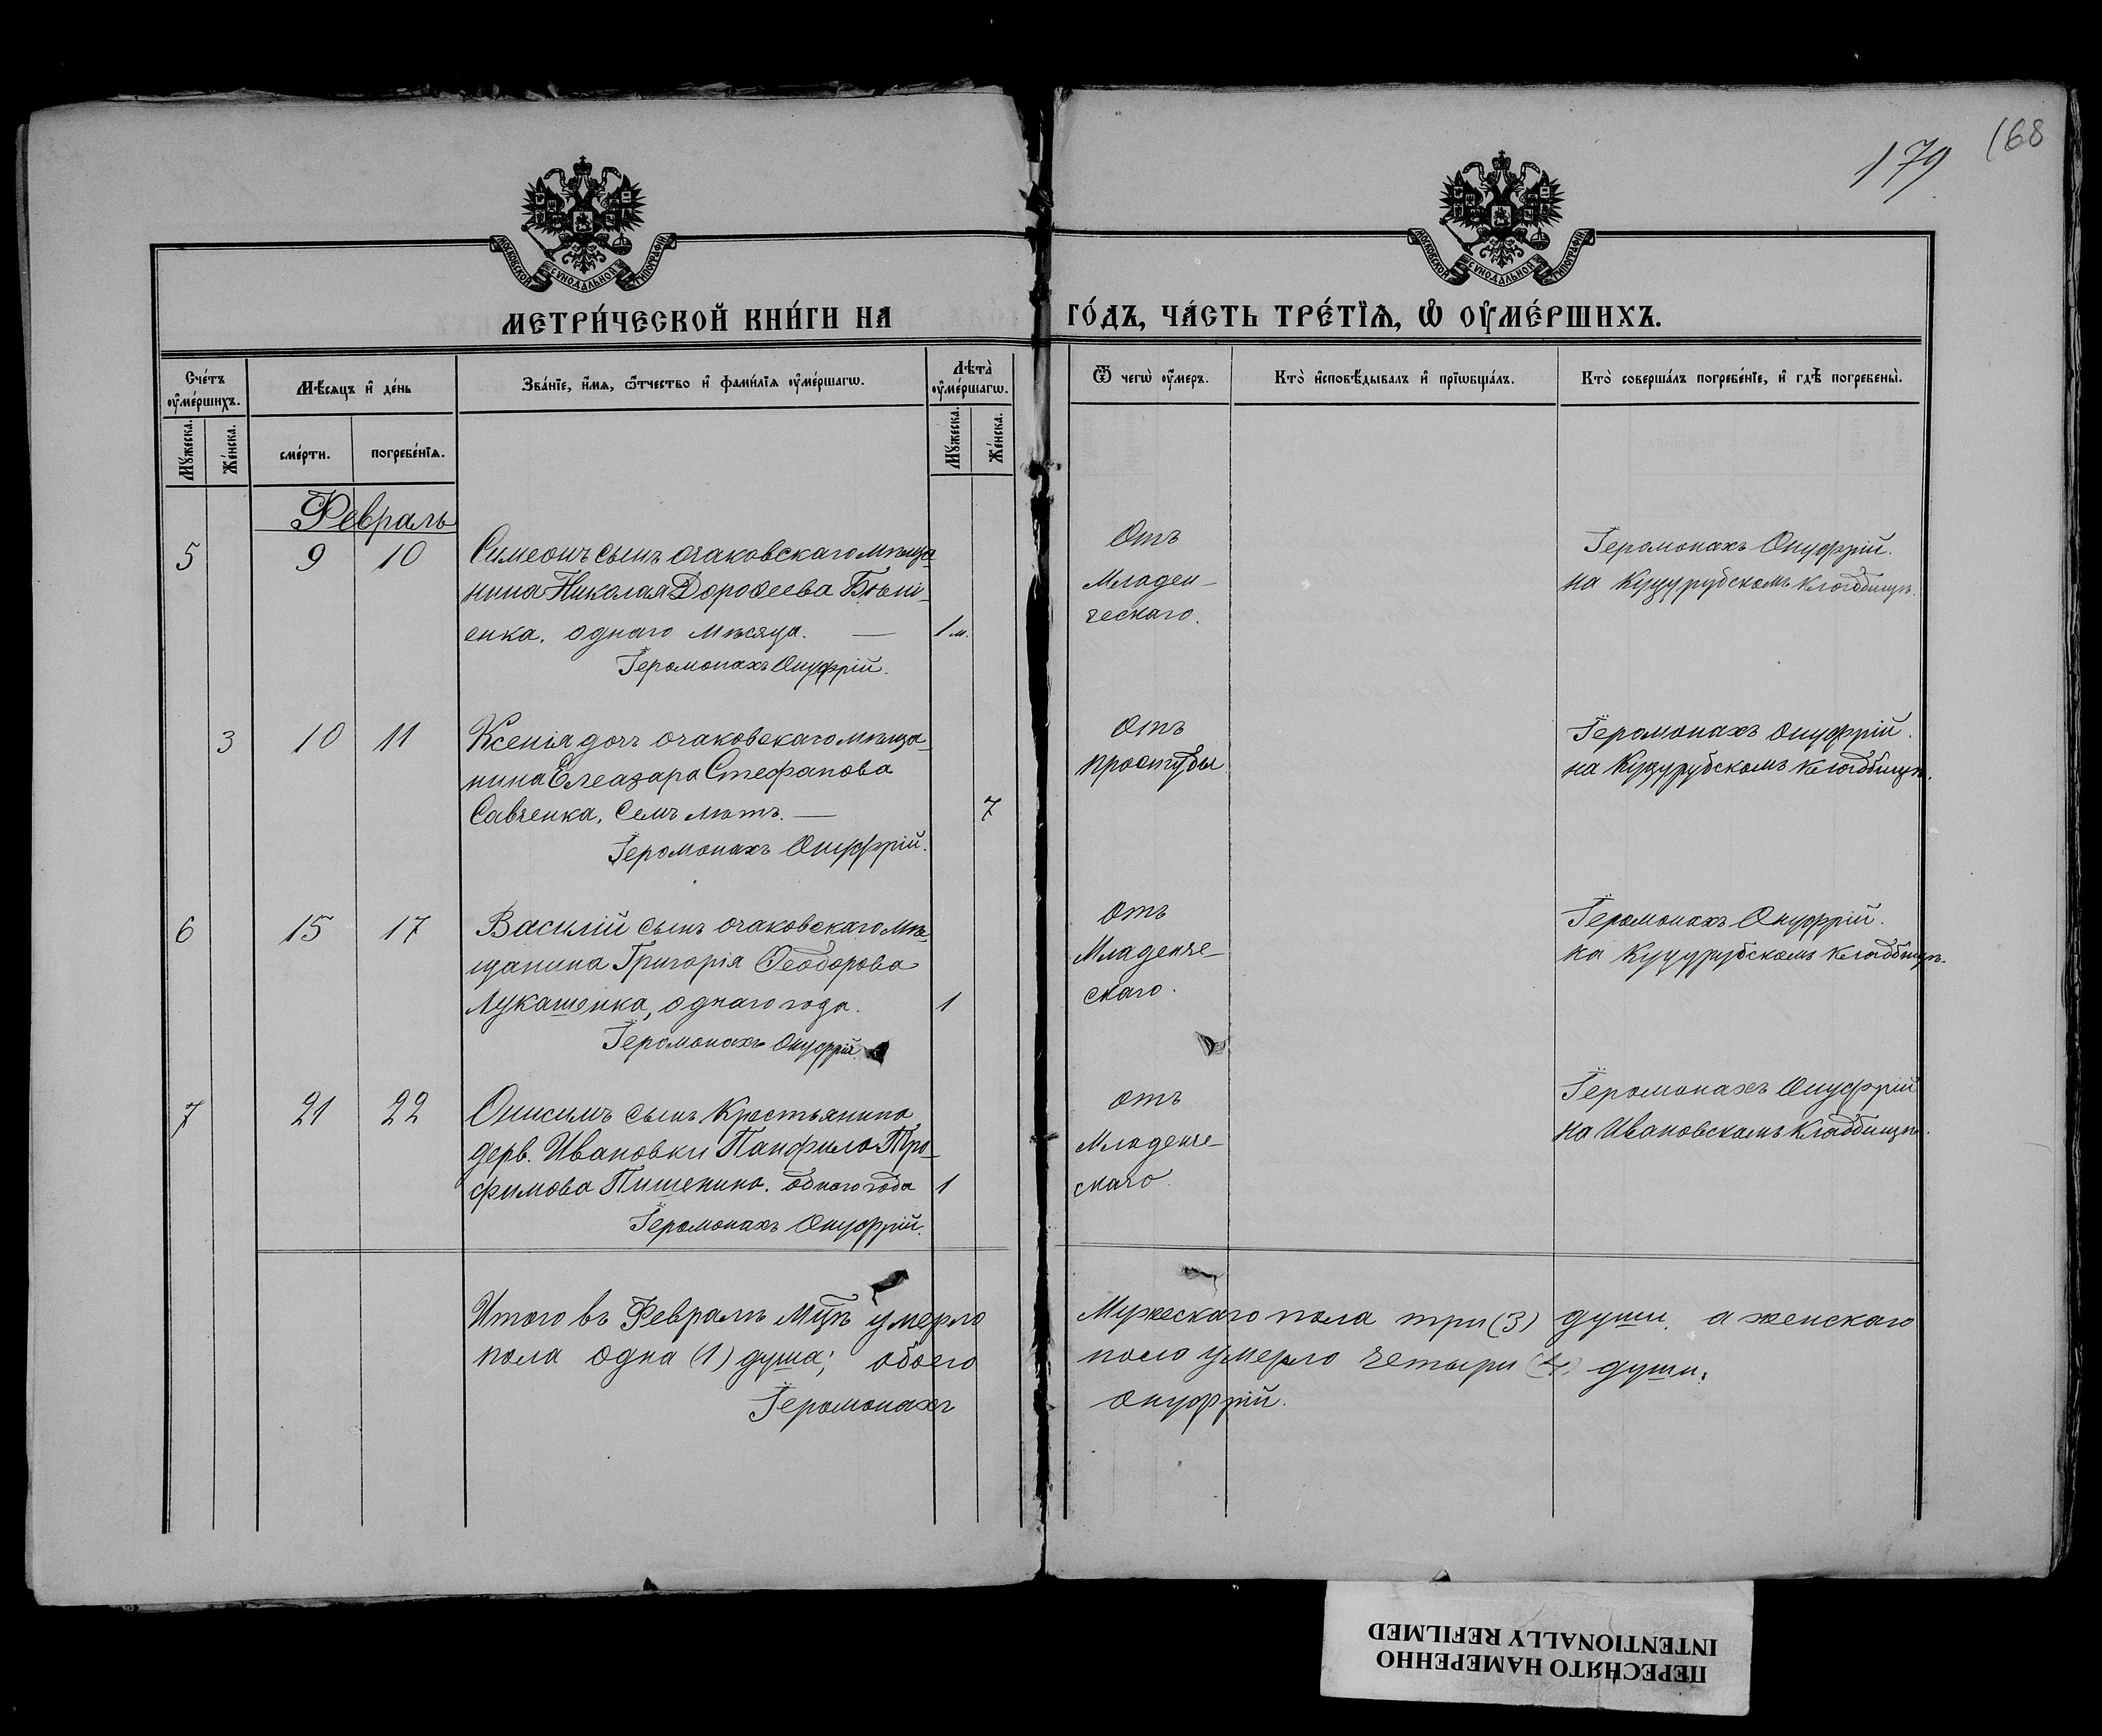 179
168
МОСКОВСКОЙ СѴНОДАЛЬНОЙ ТИПОГРАФІИ
МОСКОВСКОЙ СѴНОДАЛЬНОЙ ТИПОГРАФІИ
МЕТРИ́ЧЕСКОЙ КНИ́ГИ НА
ГО́ДЪ, ЧА́СТЬ ТРЕ́ТЇѦ, Ѽ ОУ҆МЕ́РШИХЪ.
Сче́тъ оу҆ме́ршихъ.
Мꙋжеска.
Же́нска.
Мѣ́сяцъ и҆ де́нь
сме́рти.
погребе́нїѧ.
Зва́нїе, и҆́мѧ, ѻ҆́тчество и҆ фами́лїѧ оу҆ме́ршагѡ.
Лѣта̀ оу҆ме́ршагѡ.
Мꙋжеска.
Же́нска.
Ѿ чегѡ̀ оу҆́меръ.
Кто̀ и҆сповѣ́дывалъ и҆ прїѡбща́лъ.
Кто̀ соверша́лъ погребе́нїе, и҆ гдѣ̀ погребены̀.
Февраль
5 9 10 Симеонъ сынъ очаковскаго мѣща-
нина Николая Дороѳеева
енка, однаго мѣсяца. — 1 м.
Іеромонахъ Онуфрій.
Отъ
Младен-
ческаго.
Іеромонахъ Онуфрій.
на Куцурубскомъ кладбищѣ.
3 10 11 Ксенія дочь очаковскаго мѣща-
нина Елеазара Стефанова
Савченка, семь лѣтъ. — 7
Іеромонахъ Онуфрій.
Отъ
простуды
Іеромонахъ Онуфрій.
на Куцурубскомъ кладбищѣ.
6 15 17 Василій сынъ очаковскаго мѣ-
щанина Григорія Ѳеодорова
Лукашенка, однаго года. 1
Іеромонахъ Онуфрій.
Отъ
Младенче-
скаго.
Іеромонахъ Онуфрій.
на Куцурубскомъ кладбищѣ.
7 21 22 Онисимъ сынъ крестьянина
дерв. Ивановки Панфила Тро-
фимова Пишенина. однаго года 1
Іеромонахъ Онуфрій.
отъ
Младенче-
скаго.
Іеромонахъ Онуфрій
на Ивановскомъ кладбищѣ.
Итого въ Февралѣ мцѣ умерло Мужескаго пола три (3) души, а женскаго
пола одна (1) душа; обоего пола умерло четыри (4) души.
Іеромонахъ Онуфрій.
ПЕРЕСНЯТО НАМЕРЕННО
INTENTIONALLY REFILMED